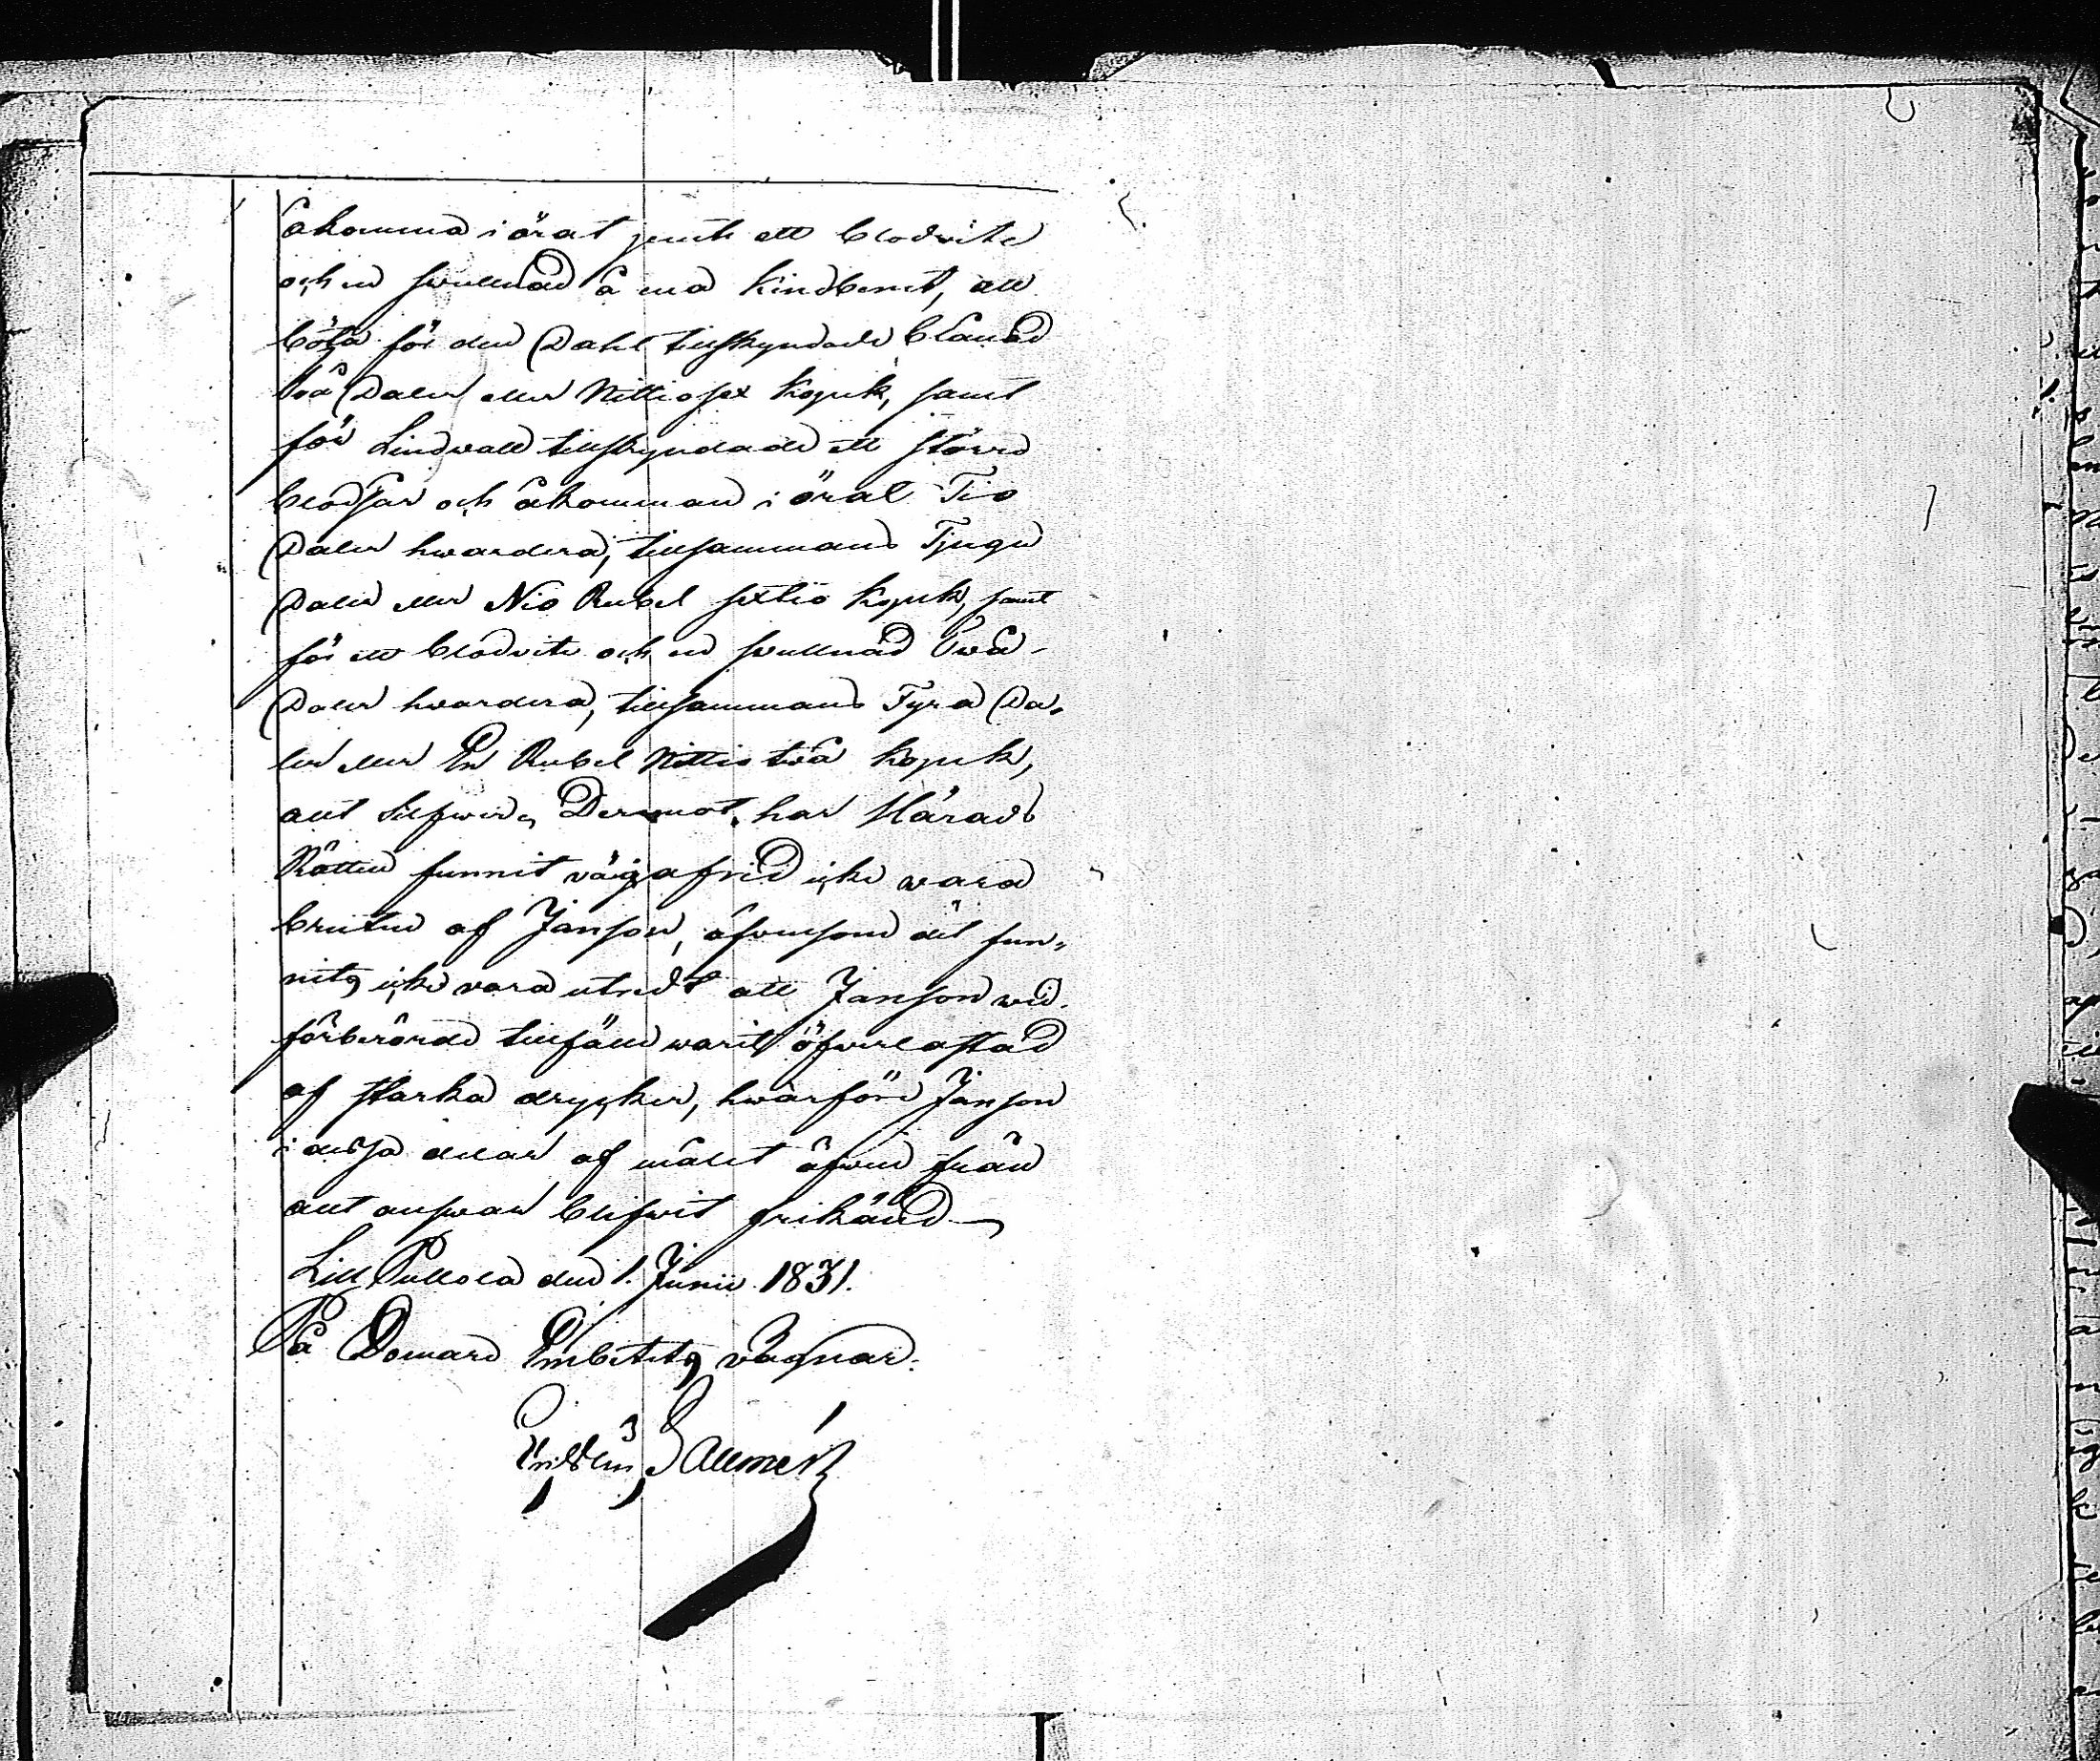 åkomma i örat jemte ett blodvite
och en svullnad å ena kindbenet, att
böta för den Dahl tillskyndade blånad
två Daler eller Nittiosex kopek, samt
för Lindvall tillskyndade ett större
blodsår och åkomman i örat Tio
Daler hwardera, tillsammans Tjugu
Daler eller Nio Rubel sextio kopek, samt
för ett blodvite och en svullnad Twå
Daler hwardera, tillsammans Fyra Da-
ler eller En Rubel Nittio två kopek,
allt Silfwer. Deremot har Härads
Rätten funnit vägafrid icke wara
bruten af Janson, äfvensom det fun-
nits icke vara utredt att Janson wid
förberörde tillfälle warit öfverlastad
af starka drycker, hwarföre Janson
i dessa delar af målet äfven från
allt answar blifwit frikänd
Lill Pellola den 1. Junii 1831.
På Domare Embetets vägnar.